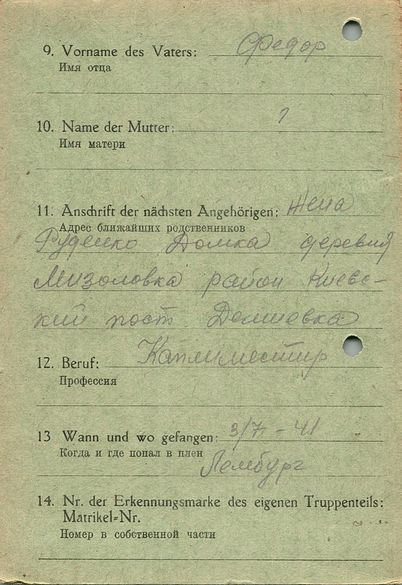 9. Vorname des Vaters: Федор
Имя отца
10. Name der Mutter: ?
Имя матери
11. Anschrift der nächsten Angehörigen: Жена
Адрес ближайших родственников
Руденко Домка деревня
Мизоловка район Киевс-
кий пост Демиевка
12. Beruf:
Профессия
13 Wann und wo gefangen: 3/7 - 41
Когда и где попал в плен
Лембург
14. Nr. der Erkennungsmarke des eigenen Truppenteils:
Matrikel=Nr.
Номер в собственной части